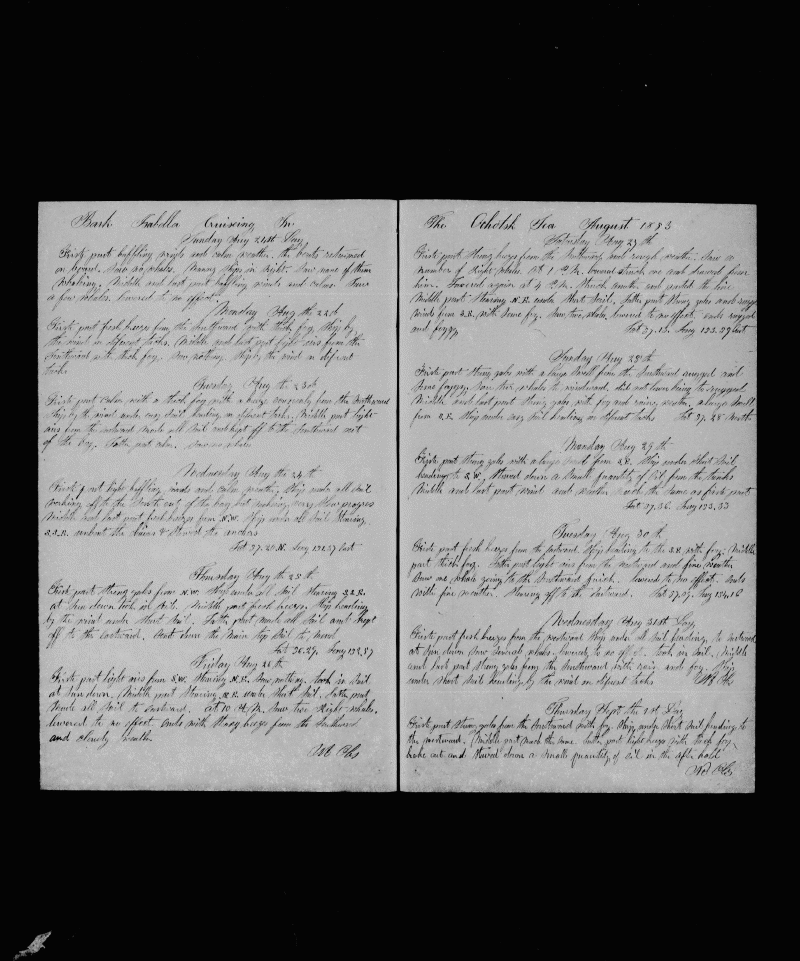 Bark Isabella Cruiseing In
Sunday Aug 21st Day
Firsts part baffling winds and calm weather. the boats returned
on board. Saw no whales. Many Ships in sight. Saw none of them
Whaleing. Middle and last part baffling winds and calms. Saw
a few whales. lowered to no effect
Monday Aug the 22d
Firsts part fresh breeze from the Southward with thick fog. Ship by
the wind on different tacks. Middle and last part light airs from the
Southward with thick fog. Saw nothing. Ship by the wind on different
tacks
Tuesday Aug th 23th
Firsts part calm with a thick fog with a breeze from the Northward
Ship by the wind under easy Sail heading on different tacks. Middle part light
airs from the westward made all Sail and kept off to the Southward out
of the bay. Latter part calm. Saw no whales
Wednesday Aug the 24th
Firsts part light baffling winds and calm weather. Ship under all Sail
working off to the South out of the bay but making very slow progress
Middle and last part fresh breeze from N.W. Ship under all Sail Steering
S.S.E. unbent the chains & Stowed the anchors
Lat 57.20 N. Long 137.37 East
Thursday Aug th 25th
Firsts part Strong gales from N.W. Ship under all Sail Steering S.S.E.
at Sun down took in Sail. Middle part fresh breeze. Ship heading
by the wind under Short Sail. Latter part made all Sail and kept
off to the eastward. Sent down the Main Top Sail to mend
Lat 56.27. Long 138.57
Friday Aug 26th
Firsts part light airs from S.W. Steering N.E. Saw nothing. took in Sail
at Sun down. Middle part Steering N.E. under Short Sail. Latter part
made all Sail to eastward. at 10 A.M. Saw two Right whales.
lowered to no effect. ends with Strong breeze from the Southward
and cloudy weather
The Ochotsk Sea August 1853
Saturday Aug 27th
Firsts part Strong breeze from the Southward and rough weather. Saw a
number of Right whales. at 1 P.M. lowered Struck one and drawed from
him. Lowered again at 4 P.M. Struck another and parted the line
Middle part Steering N.E. under Short Sail. Latter part Strong gales and rugged
winds from S.E. with Some fog. Saw two whales, lowered to no effect. ends rugged
and foggy.
Sunday Aug 28th
Firsts part Strong gales with a large Swell from the Southward rugged and
Some foggy. Saw two whales to windward. did not lower being to rugged
Middle and last part Strong gales with fog and rainy weather. a large Swell
from S.E. Ship under easy Sail heading on different tacks Lat 57.28 North
Monday Aug 29th
Firsts part Strong gales with a large Swell from S.E. Ship under Short Sail
heading to S.W. Stowed down a Small quantity of Oil from the tanks
Middle and last part wind and weather much the same as firsts part
Lat 57.36. Long 153.33
Tuesday Aug 30th
Firsts part fresh breeze from the eastward. Ship heading to the S.E. with fog. Middle
part thick fog. Latter part light airs from the westward and fine weather
Saw one whale going to the Southward quick. lowered to no effect. ends
with fine weather. Steering off to the eastward. Lat 57.09. Long 154.16
Wednesday Aug 31st Day
Firsts part fresh breeze from the westward Ship under all Sail heading to eastward
at Sun down Saw Several whales. lowered to no effect. took in Sail. Middle
and last part Strong gales from the Southward with rain and fog. Ship
under Short Sail heading by the wind on different tacks
Thursday Sept the 1st Day
Firsts part Strong gales from the Southward with fog. Ship under Short Sail heading to
the westward. Middle part much the same. Latter part light breeze with thick fog.
broke out and Stowed down a Small quantity of oil in the after hold